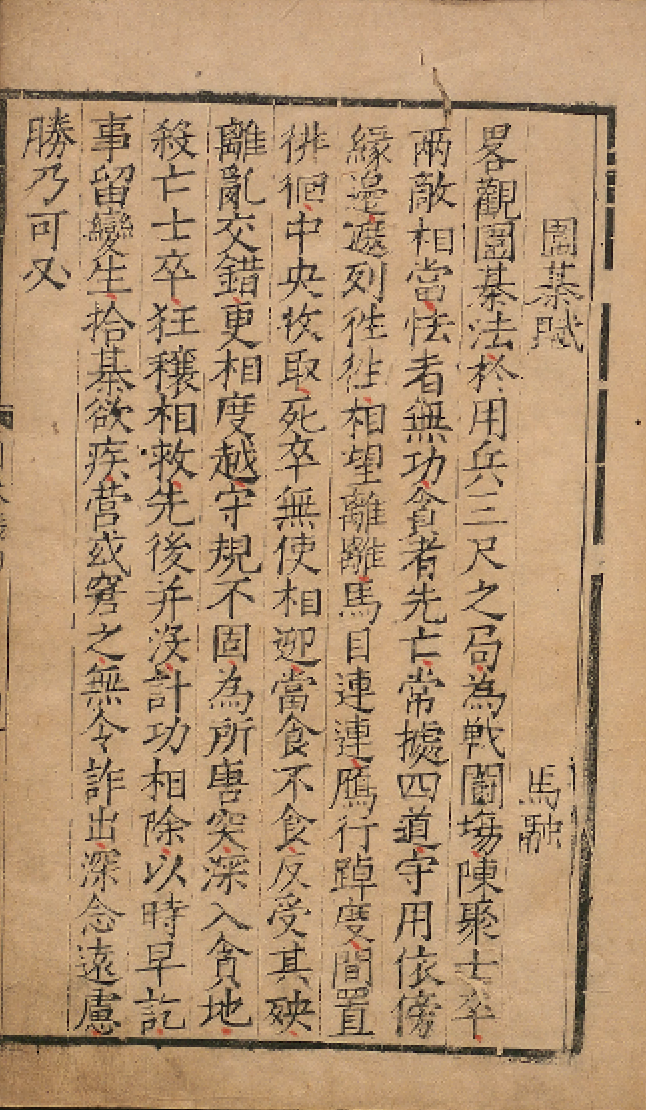 圍棊賦 馬融
畧觀圍棊法於用兵三尺之局為戰鬪塲陳聚士卒
兩敵相當怯者無功貪者先亡常據四道守用依傍
緣邊遮列徃徃相望離離馬目連連鴈行踔度間置
徘徊中央收取死卒無使相迎當食不食反受其殃
離亂交錯更相度越守規不固為所唐突深入貪地
殺亡士卒狂穰相救先後并沒計功相除以時早訖
事留變生拾棊欲疾營或窘之無令詐出深念遠慮
勝乃可必